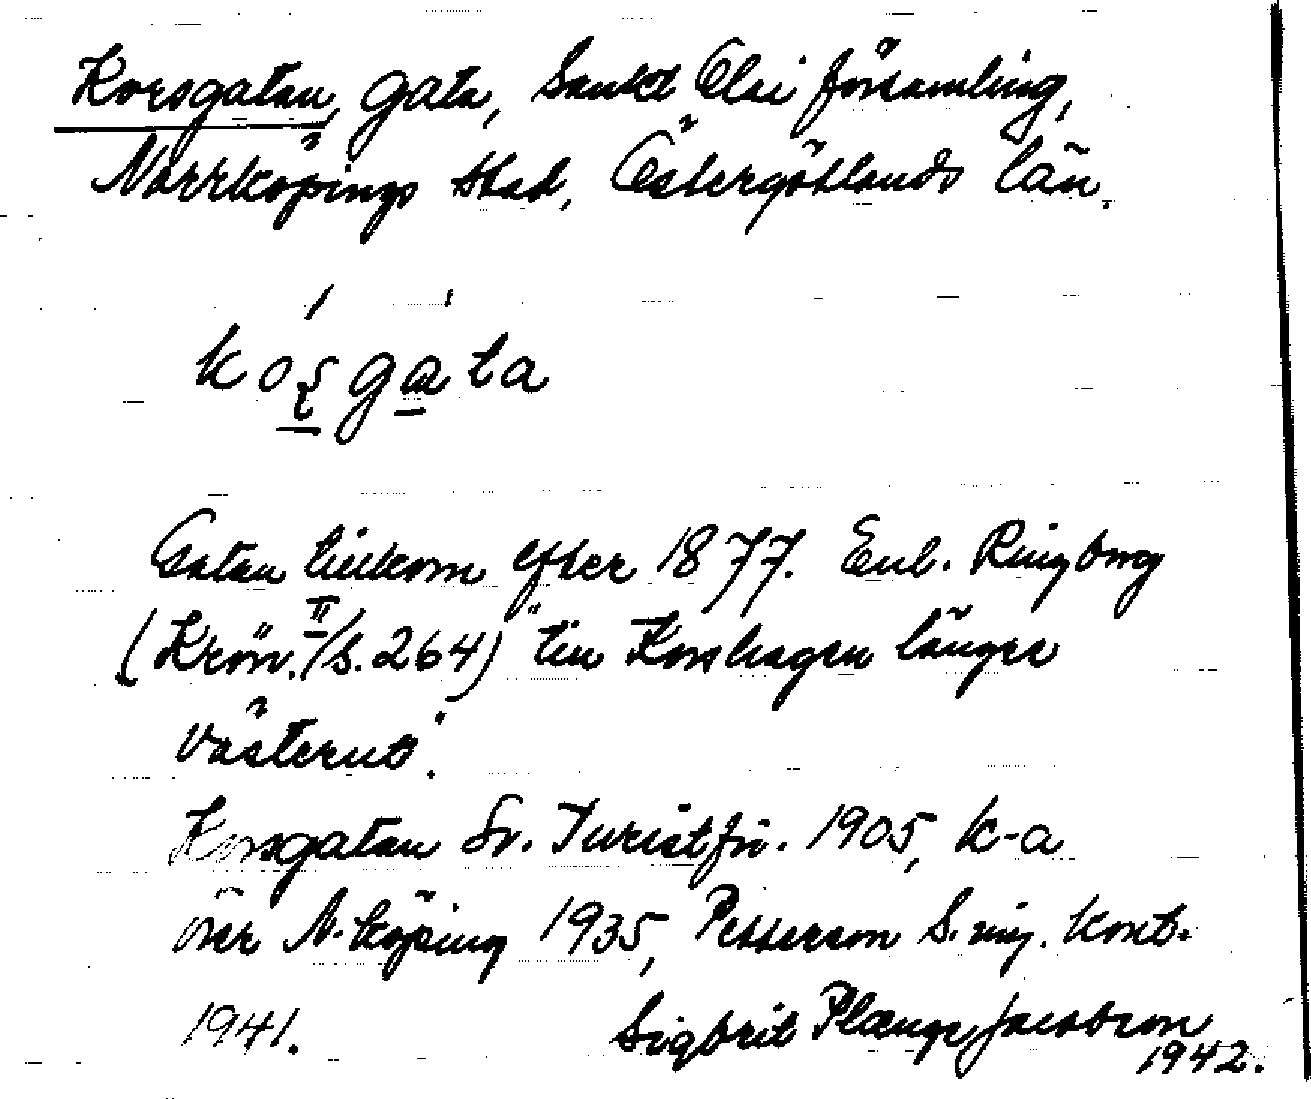 Korsgatan, gata, Sankt Olai församling,
Norrköpings stad, Östergötlands län.
koʂgata
Gatan tillkom efter 1877. Enl. Ringborg
(Krön. II/s. 264) "till Korshagen längre
västerut".
Korsgatan Sv. Turistför. 1905, k-a
över N.köping 1935, Petterson S. ing. kont.
1941. Sigbrit Plænge Jacobson
1942.